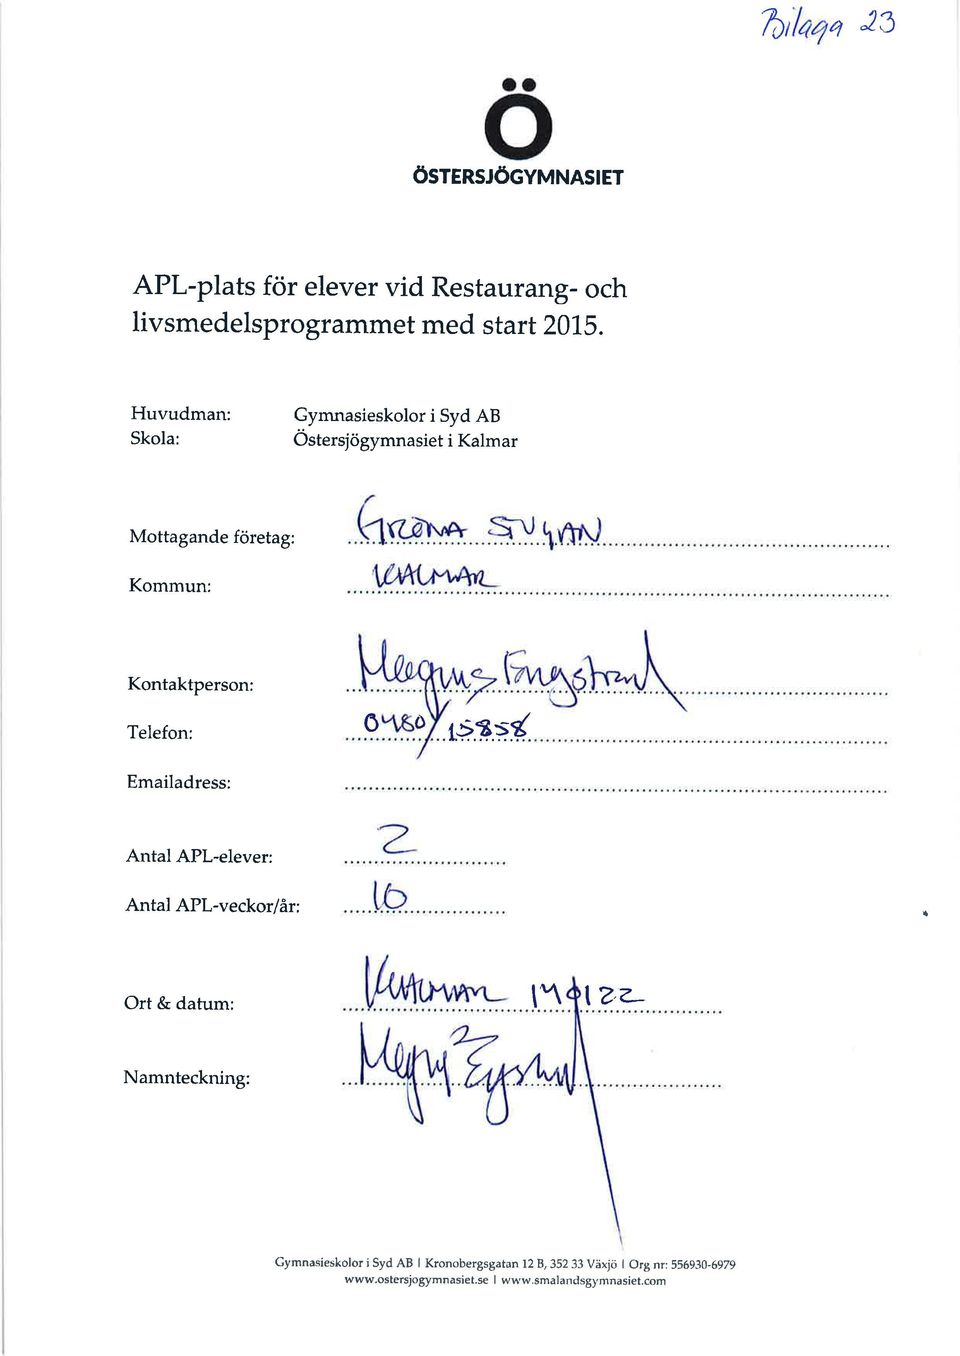 Bilaga 23
Ö
ÖSTERSJÖGYMNASIET
APL-plats för elever vid Restaurang- och
livsmedelsprogrammet med start 2015.
Huvudman: Gymnasieskolor i Syd AB
Skola: Östersjögymnasiet i Kalmar
Mottagande företag: GRÖNA STUGAN
Kommun: KALMAR
Kontaktperson: Magnus Engstrand
Telefon: 0480/15858
Emailadress:
Antal APL-elever: 2
Antal APL-veckor/år: 10
Ort & datum: KALMAR 140122
Namnteckning:
Gymnasieskolor i Syd AB I Kronobergsgatan 12 B, 352 33 Växjö I Org nr: 556930-6979
www.ostersjogymnasiet.se I www.smalandsgymnasiet.com